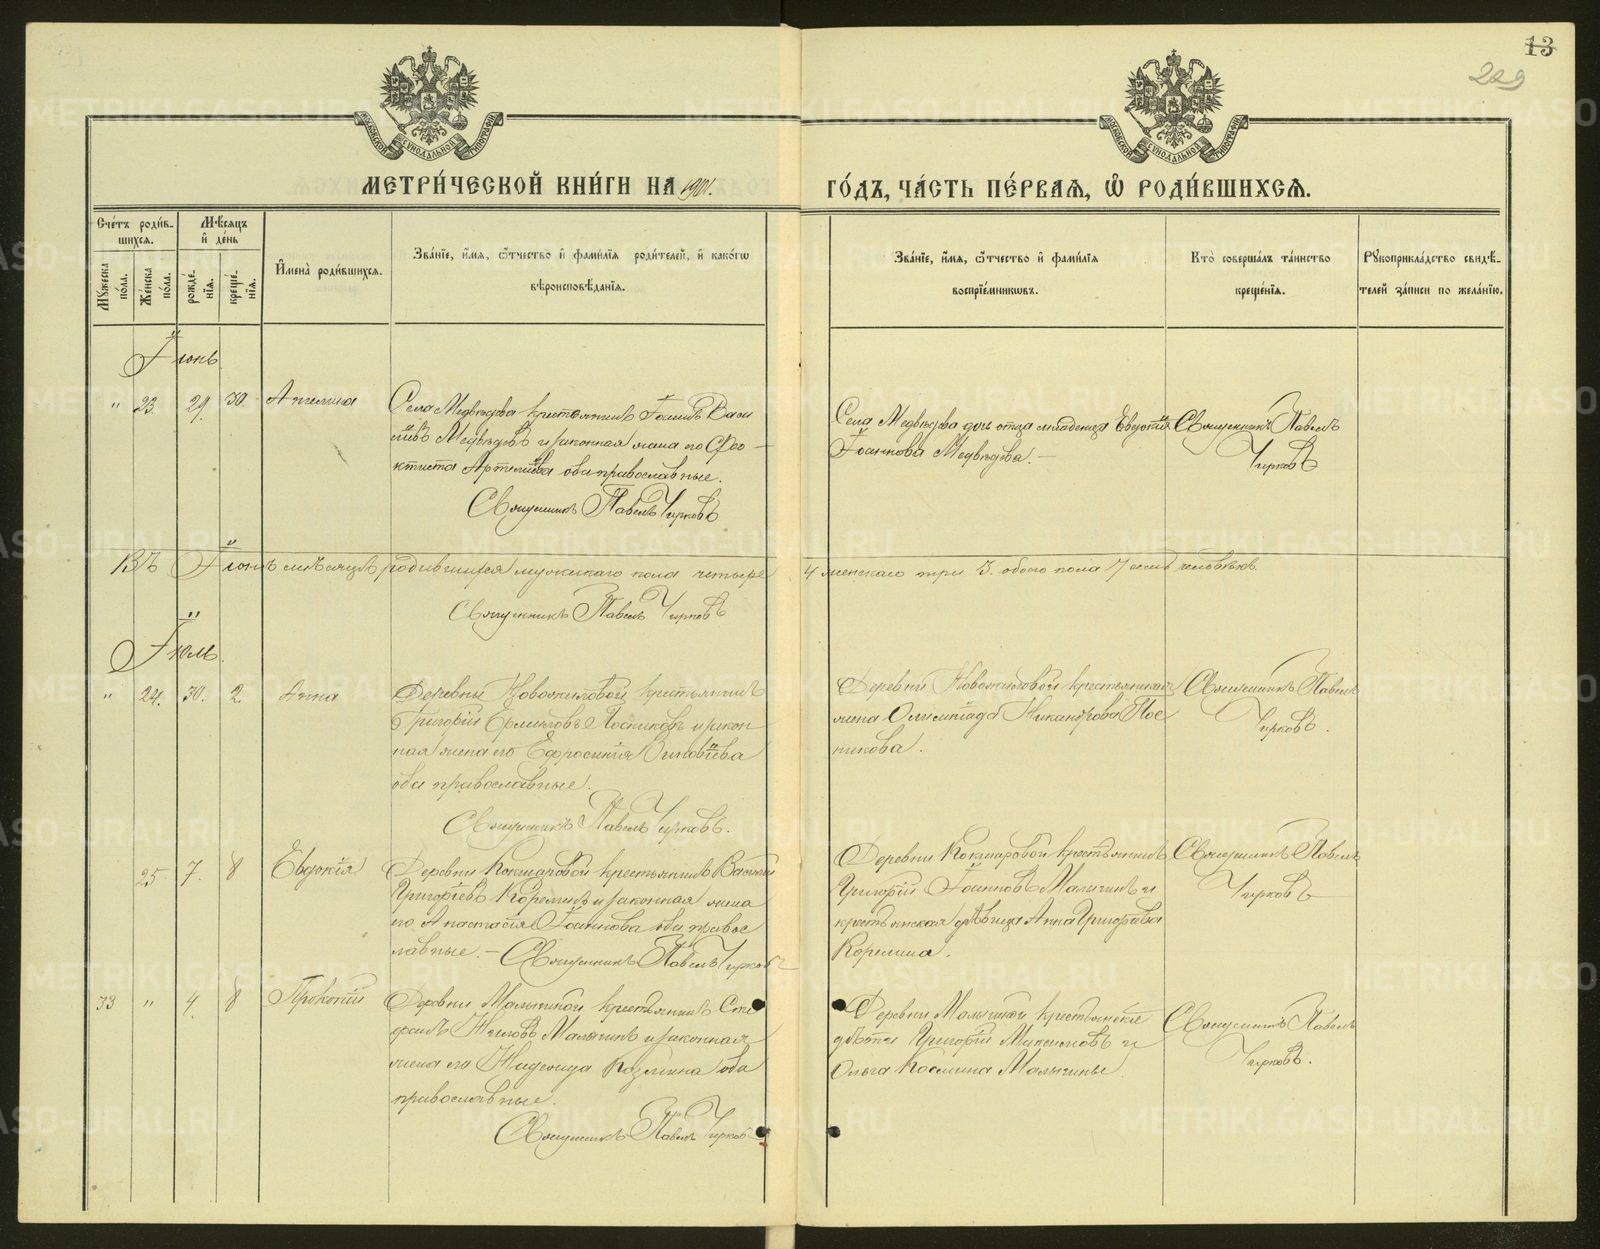 13
229
МОСКОВСКОЙ СѴНОДАЛЬНОЙ ТИПОГРАФІИ
МОСКОВСКОЙ СѴНОДАЛЬНОЙ ТИПОГРАФІИ
МЕТРИ́ЧЕСКОЙ КНИ́ГИ НА 1901.
ГО́ДЪ, ЧА́СТЬ ПЕ́РВАѦ, Ѽ РОДИ́ВШИХСѦ.
Сче́тъ роди́в-
шихсѧ.
Мꙋ́жеска по́ла.
Же́нска по́ла.
Мѣ́сѧцъ и҆ де́нь
рожде́нїѧ.
креще́нїѧ.
И҆мена̀ роди́вшихсѧ.
Зва́нїе, и҆́мѧ, ѻ҆́тчество и҆ фами́лїѧ роди́телей, и҆ како́гѡ
вѣроисповѣ́данїѧ.
Зва́нїе, и҆́мѧ, ѻ҆́тчество и҆ фами́лїѧ
воспрїе́мникѡвъ.
Кто̀ соверша́лъ та́инство
креще́нїѧ.
Рꙋкоприкла́дство свидѣ́-
телей за́писи по жела́нїю.
Іюнь
" 23. 29. 30. Ангелина
Села Медвѣдева крестьянинъ Іоаннъ Васи
лiевъ Медвѣдевъ и законная жена его Фео-
ктиста Артемiева оба православные.
Священникъ Павелъ Чирковъ
Села Медвѣдева дочь отца младенца Евдокiя
Іоаннова Медвѣдева. –
Священникъ Павелъ
Чирковъ
Въ Іюнѣ мѣсяцѣ родившихся мужскаго пола четыре
4 женскаго три 3. обоего пола 7 семь человѣкъ.
Священникъ Павелъ Чирковъ
Іюль.
" 24. 30. 2. Анна
Деревни Новожиловой крестьянинъ
Григорiй Ермиловъ Посниковъ и закон
ная жена его Ефросинiя Зиновiева
оба православные.
Священникъ Павелъ Чирковъ.
Деревни Новожиловой крестьянская
жена Олимпiада Никандрова Пос
никова.
Священникъ Павелъ
Чирковъ.
25. 7. 8 Евдокiя
Деревни Кокшаровой крестьянинъ Василiй
Григорiевъ Корелинъ и законная жена
его Анастасiя Іоаннова оба правос
лавные. – Священникъ Павелъ Чирковъ
Деревни Кокшаровой крестьянинъ
Григорiй Іоанновъ Малыгинъ и
крестьянская дѣвица Анна Григорiева
Корелина.
Священникъ Павелъ
Чирковъ
33 " 4. 8 Прокопiй
Деревни Малыгиной крестьянинъ Сте
фанъ Ниловъ Малыгинъ и законная
жена его Надежда Козмина оба
православные.
Священникъ Павелъ Чирковъ
Деревни Малыгиной крестьянскiе
дѣти Григорiй Максимовъ и
Ольга Космина Малыгины.
Священникъ Павелъ
Чирковъ.
METRIKI.GASO-URAL.RU